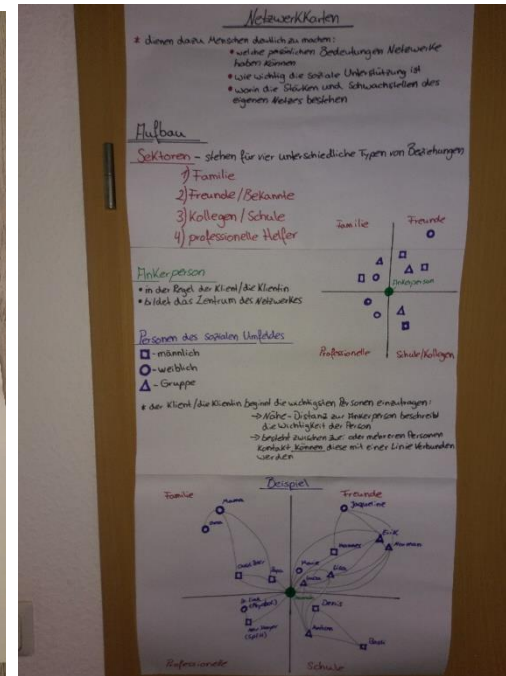 Netzwerkkarten
* dienen dazu Menschen deutlich zu machen:
• welche persönlichen Bedeutungen Netzwerke
haben können
• wie wichtig die soziale Unterstützung ist
• worin die Stärken und Schwachstellen des
eigenen Netzes bestehen
Aufbau
Sektoren - stehen für vier unterschiedliche Typen von Beziehungen
1) Familie
2) Freunde/Bekannte
3) Kollegen/Schule
4) professionelle Helfer
Familie
Freunde
Ankerperson
Professionelle
Schule/Kollegen
Ankerperson
• in der Regel der Klient/die Klientin
• bildet das Zentrum des Netzwerkes
Personen des sozialen Umfeldes
- männlich
- weiblich
- Gruppe
* der Klient/die Klientin beginnt die wichtigsten Personen einzutragen:
→ Nähe-Distanz zur Ankerperson beschreibt
die Wichtigkeit der Person
→ besteht zwischen zwei oder mehreren Personen
Kontakt können diese mit einer Linie verbunden
werden
Beispiel
Familie
Freunde
Mama
Jacqueline
Oma
Erik
Hannes
Papa
Marie
Lisa
Deniz
Professionelle
Schule